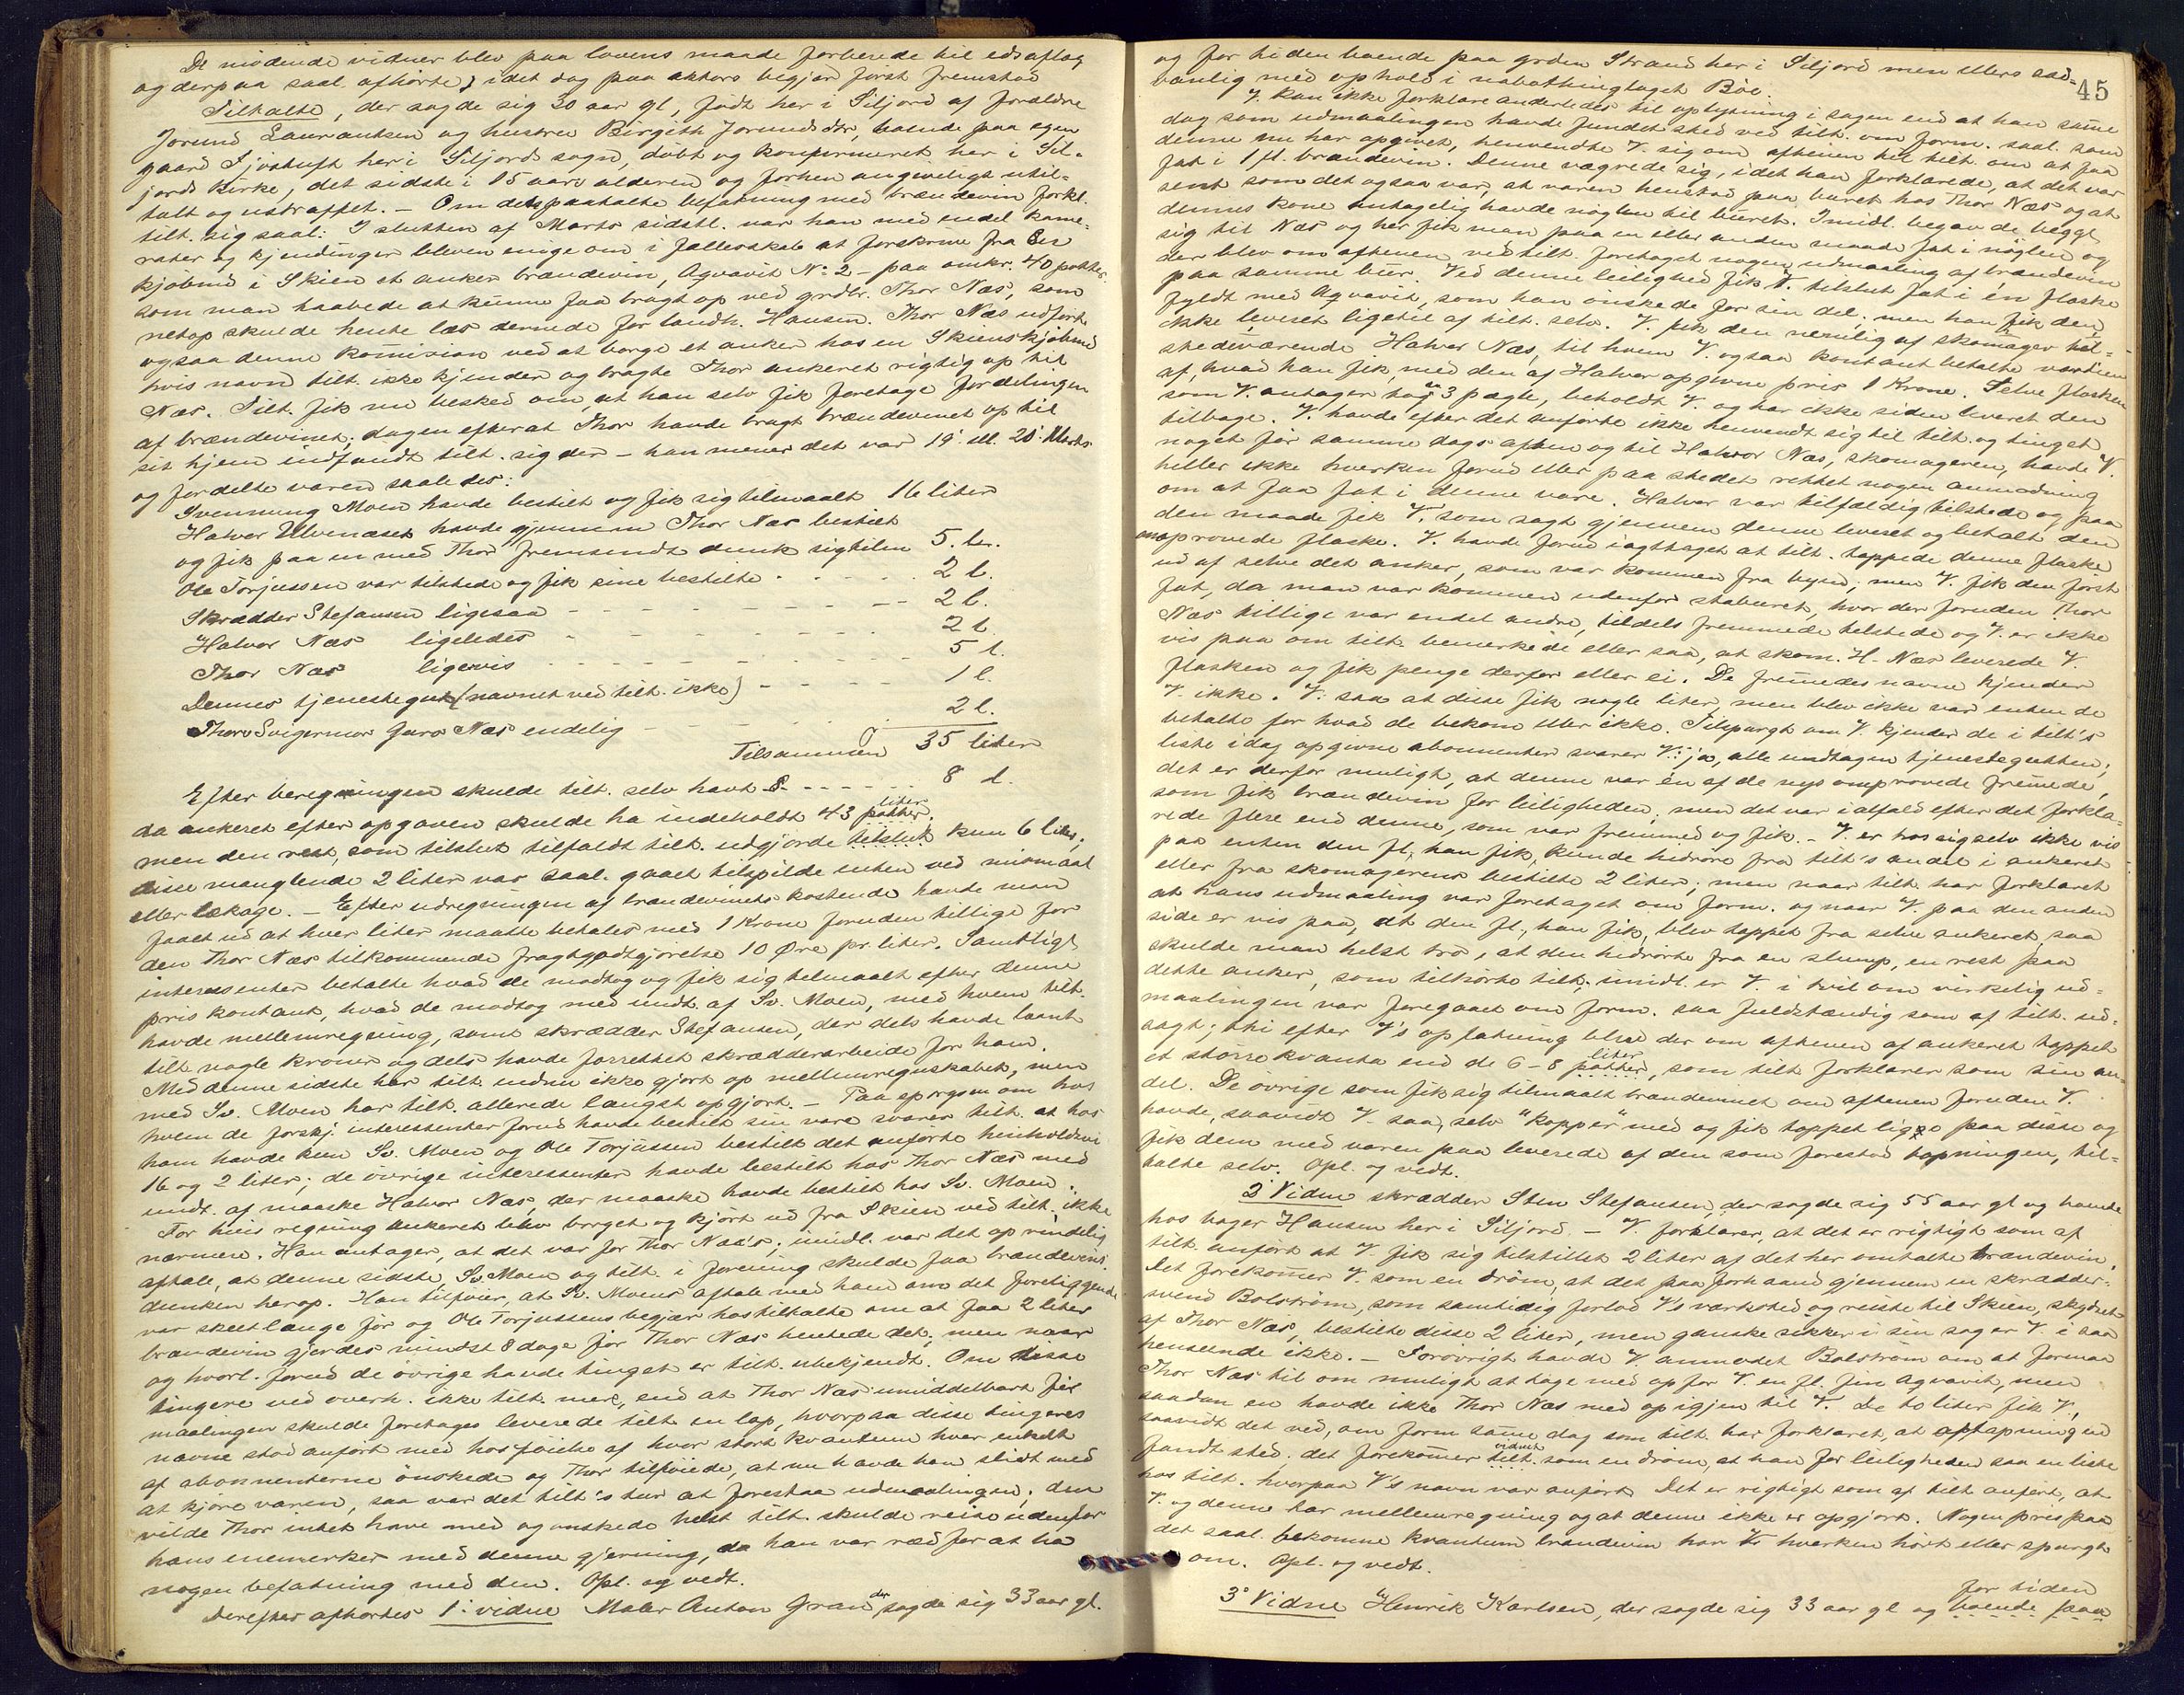 De mødende vidner blev paa lovens maade forberede til edsaflæg
og derpaa saal. afhørte, idet dog paa aktors begjær først fremstod
Tiltalte, der sagde sig 30 aar gl, født her i Siljord af forældre
Jorund Laurantsen og hustru Birgith Jorundsdtr, boende paa egen
gaard her i Siljord sogn, døbt og konfirmeret her i Sil-
jords Kirke, det sidste i 15 aars alderen og forhen angivelig util-
talt og ustraffet. — Om den paatalte befatning med brændevin forkl.
tilt. sig saal: I slutten af Marts sidstl. var han med endel kame-
rater og kjendinger bleven enige om i fællesskab at forskrive fra en
kjøbmd i Skien et anker brændevin, Aqvavit No 2 – paa omkr. 40 potter
som man haabede at kunne faa bragt op ved grdbr. Thor Næs, som
netop skulde hente læs dernede for landh. Hansen. Thor Næs udførte
ogsaa denne kommision ved at borge et anker hos en Skienskjøbmd
hvis navn tilt. ikke kjender og bragte Thor ankeret rigtig op til
Næs. Tilt. fik nu besked om, at han selv fik foretage fordelingen
af brændevinet; dagen efter at Thor havde bragt brændevinet op til
sit hjem indfandt tilt. sig der – han mener det var 19. ell. 20. Marts
og fordelte varen saaledes:
Svennung Moen havde bestilt og fik sig tilmaalt 16 liter
Halvor Ulvenæset havde gjennem Thor Næs bestilt
og fik paa en med Thor fremsendt dunk sig tilm 5. l.
Ole Torjussen var tilstede og fik sine bestilte . . . . 2 l.
Skrædder Stefansen ligesaa — — — — 2 l.
Halvor Næs ligeledes . . . . 2 l.
Thor Næs ligevis . . . . 5 l.
Dennes tjenestegut (navnet ved tilt. ikke) — — — 1 l.
Thors Svigermor Guro Næs endelig . . . 2 l.
Tilsammen 35 liter
Efter beregningen skulde tilt. selv havt . . . . . 8 l.
da ankeret efter opgaven skulde ha indeholdt 43 potter liter.
men den rest, som tilslut tilfaldt tilt. udgjorde tilslut kun 6 liter,
disse manglende 2 liter var saal. gaaet tilspilde enten ved mismaal
eller lækage. — Efter udregningen af brændevinets kostende havde man
faaet ud at hver liter maatte betales med 1 Krone foruden tillige for
den Thor Næs tilkommende fragtgodtgjørelse 10 Øre pr. liter. Samtlige
interessenter betalte hvad de modtog og fik sig tilmaalt efter denne
pris kontant, hvad de modtog med undt. af Sv. Moen, med hvem tilt.
havde mellemregning, samt skrædder Stefansen, der dels havde laant
tilt. nogle kroner og dels havde forrettet skrædderarbeide for ham.
Med denne sidste har tilt. endnu ikke gjort op mellemregnskabet, men
med Sv. Moen har tilt. allerede længst opgjort. — Paa spørgsm om hos
hvem de forskj. interessenter forud havde bestilt sin vare svarer tilt. at hos
ham havde kun Sv. Moen og Ole Torjussen bestilt det anførte henholdsvis
16 og 2 liter; de øvrige interessenter havde bestilt hos Thor Næs med
undt. af maaske Halvor Næs, der maaske havde bestilt hos Sv. Moen.
For hvis regning ankeret blev borget og kjørt ud fra Skien ved tilt. ikke
nærmere. Han antager, at det var for Thor Næs's; imidl. var det oprindelig
aftale, at denne sidste, Sv Moen og tilt. i forening skulde faa brændevins
dunken herop. Han tilføier, at Sv. Moens aftale med ham om det foreliggende
var skeet længe før og Ole Torjussens begjær hos tiltalte om at faa 2 liter
brændevin gjordes mindst 8 dage før Thor Næs hentede det; men naar
og hvorl. forud de øvrige havde tinget er tilt. ubekjendt. Om disse
tingere ved overh. ikke tilt. mere, end at Thor Næs umiddelbart før
maalingen skulde foretages leverede tilt en lap, hvorpaa disse tingeres
navne stod anført med hosføielse af hvor stort kvantum hver enkelt
af abonnenterne ønskede og Thor tilføiede, at nu havde han slidt med
at kjøre varen, saa var det tilt's tur at forestaa udmaalingen; den
vilde Thor intet have med og ønskede helst tilt. skulde reise udenfor
hans enemerker med denne gjerning, da han var ræd for at ha
nogen befatning med den. Opl. og vedt.
Derefter afhørtes 1. vidne Maler Anton Gran der sagde sig 33 aar gl.
45
og for tiden boende paa grden Strand her i Siljord men ellers sæd-
vanlig med ophold i nabothinglaget Bøe.
V. kan ikke forklare anderledes til oplysning i sagen end at han samme
dag som udmaalingen havde fundet sted ved tilt. om form. saal. som
denne nu har opgivet, henvendte V. sig om aftenen til tilt. om at faa
fat i 1 fl. brændevin. Denne vægrede sig, idet han forklarede, at det var
sent som det ogsaa var, at varen henstod paa buret hos Thor Næs og at
dennes kone antagelig havde nøglen til buret. Imidl. begav de begge
sig til Næs og her fik man paa en eller anden maade fat i nøglen og
der blev om aftenen ved tilt. foretaget nogen udmaaling af brændevin
paa samme bur. Ved denne leilighed fik V. tilslut fat i én flaske
fyldt med Aqvavit, som han ønskede for sin del; men han fik den
ikke leveret ligetil af tilt. selv. V. fik den nemlig af skomager til-
stedeværende Halvor Næs, til hvem V. ogsaa kontant betalte værdien
af, hvad han fik, med den af Halvor opgivne pris 1 Krone. Selve flasken
som V. antager tog en 3 pægle, beholdt V. og har ikke siden leveret den
tilbage. V. havde efter det anførte ikke henvendt sig til tilt. og tinget
noget før samme dags aften og til Halvor Næs, skomageren, havde V.
heller ikke hverken forud eller paa stedet rettet nogen anmodning
om at faa fat i denne vare. Halvor var tilfældig tilstede og paa
den maade fik V. som sagt gjennem denne leveret og betalt den
omprøvede flaske. V. havde forud iagttaget at tilt. tappede denne flaske
ud af selve det anker, som var kommen fra byen; men V. fik den først
fat, da man var kommen udenfor stabburet, hvor der foruden Thor
Næs tillige var endel andre, tildels fremmede tilstede og V. er ikke
vis paa om tilt. bemerkede eller saa, at skom. H. Næs leverede V.
flasken og fik penge derfor eller ei. De fremmedes navne kjender
V. ikke. V. saa at disse fik nogle liter, men blev ikke var enten de
betalte for hvad de bekom eller ikke. Tilspurgt om V. kjender de i tilt's
liste idag opgivne abonnenter svarer V.: ja, alle undtagen tjenestegutten;
det er derfor muligt, at denne var én af de nys omprøvede fremede,
som fik brændevin for leiligheden; men det var ialfald efter det forkla-
rede flere end denne, som var fremmed og fik. — V. er hos sig selv ikke vis
paa enten den fl, han fik, kunde hidrøre fra tilt's andel i ankeret
eller fra skomagerens bestilte 2 liter; men naar tilt. har forklaret
at hans udmaaling var foretaget om form. og naar V. paa den anden
side er vis paa, at den fl., han fik, blev tappet fra selve ankeret, saa
skulde man helst tro, at den hidrørte fra en slump, en rest paa
dette anker, som tilhørte tilt.; imidl. er V. i tvil om virkelig ud-
maalingen var foregaaet om form. saa fuldstændig som af tilt. ud-
sagt; thi efter V's opfatning blev der om aftenen af ankeret tappet
et større kvanta end de 6–8 potter liter, som tilt forklarer som sin an-
del. De øvrige som fik sig tilmaalt brændevinet om aftenen foruden V.
havde, saavidt V. saa, selv "kopper" med og fik tappet lige paa disse og
fik dem med varen paa leverede af den som forestod tapningen, til-
talte selv. Opl. og vedt.
2' Vidne skrædder Sten Stefansen, der sagde sig 55 aar gl og boende
hos bager Hansen her i Siljord. — V. forklarer, at det er rigtigt som af
tilt. anført at V. fik sig tilstillet 2 liter af det her omtalte brændevin.
Det forekommer V. som en drøm, at det paa forhaand gjennem en skrædder-
svend Bolstrøm, som samtidig forlod V's værksted og reiste til Skien, skydset
af Thor Næs, bestilte disse 2 liter, men ganske sikker i sin sag er V. i saa
henseende ikke. — Forøvrigt havde V. anmodet Bolstrøm om at formaa
Thor Næs til om muligt at tage med op for V. en fl. fin Aqvavit, men
saadan en havde ikke Thor Næs med op igjen til V. De to liter fik V.,
saavidt det ved, om form samme dag som tilt. har forklaret, at aftapningen
fandt sted; det forekommer tilt. vidnet som en drøm, at han for leiligheden saa en liste
hos tilt. hvorpaa V's navn var anført. Det er rigtigt som af tilt anført, at
V. og denne har mellemregning og at denne ikke er opgjort. Nogen pris paa
det saal. bekomne kvantum brændevin har V. hverken hørt eller spurgt
om. Opl. og vedt.
3' Vidne Henrik Karlsen, der sagde sig 33 aar gl og for tiden boende paa